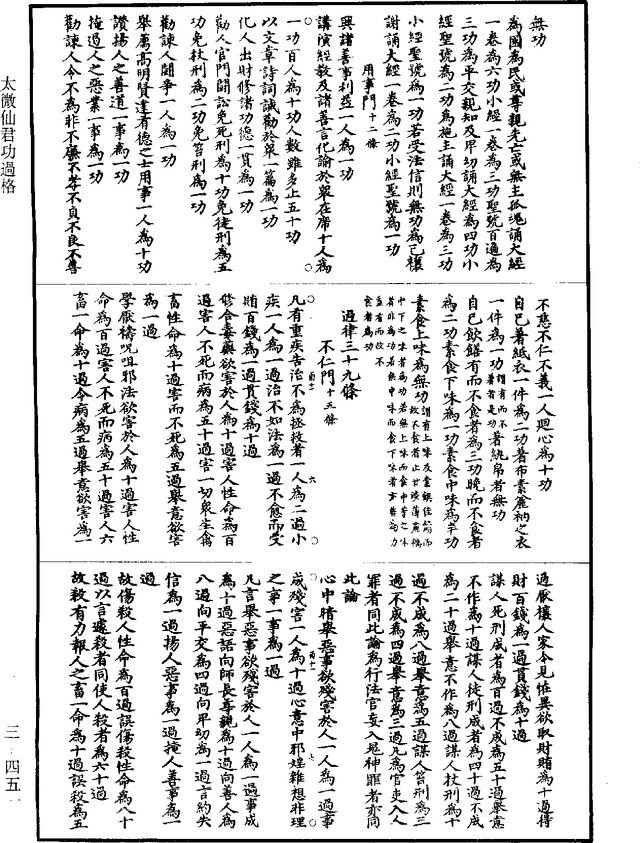 無功
為國為民或尊親先亡或無主孤魂誦大經
一卷為六功小經一卷為三功聖號百遍為
三功為平交親知及卑幼誦大經為四功小
經聖號為二功為施主誦大經一卷為三功
小經聖號為一功若受法信則無功為己禳
謝誦大經一卷為二功小經聖號為一功
用事門十二條
興諸善事利益一人為一功
講演經教及諸善言化諭於眾在席十人為
一功百人為十功人數雖多止五十功
以文章詩詞誡勸於眾一篇為一功
化人出財修諸功德一貫為一功
勸人官門鬬訟免死刑為十功免徒刑為五
功免杖刑為二功免笞刑為一功
勸諫人鬬爭一人為一功
舉薦高明賢達有德之士用事一人為十功
讚揚人之善道一事為一功
掩過人之惡業一事為一功
勸諫人令不為非不廉不孝不貞不良不善
不慈不仁不義一人廻心為十功
自己著紙衣一件為二功著布素麄衲之衣
一件為一功謂有而不著者是功著紈帛者無功
自己飲饍有而不食者為三功晚而不食者
為二功素食下味為一功素食中味為半功
素食上味為無功
過律三十九條
不仁門十五條
凡有重疾告治不為拯救者一人為二過小
疾一人為一過治不如法為一過不愈而受
賄百錢為一過貫錢為十過
修合毒藥欲害於人為十過害人性命為百
過害人不死而病為五十過害一切眾生禽
畜性命為十過害而不死為五過舉意欲害
為一過
學厭禱咒咀邪法欲害於人為十過害人性
命為百過害人不死而病為五十過害人六
畜一命為十過令病為五過舉意欲害為一
過厭禳人家令見怪異欲取財賄為十過得
財百錢為一過貫錢為十過
謀人死刑成者為百過不成為五十過舉意
不作為十過謀人徒刑成者為四十過不成
為二十過舉意不作為八過謀人杖刑為十
過不成為八過舉意為五過謀人笞刑為三
過不成為四過舉意為三過凡為官吏入人
罪者同此論為行法官妄入鬼神罪者亦同
此論
心中暗舉惡事欲殘害於人一人為一過事
成殘害一人為十過心意中邪婬雜想非理
之事一事為一過
凡言舉惡事欲殘害於人一人為一過事成
為十過惡語向師長尊親為十過向善人為
八過向平交為四過向卑幼為一過言約失
信為一過揚人惡事為一過掩人善事為一
過
故傷殺人性命為百過誤傷殺性命為八十
過以言遣殺者同使人殺者為六十過
故殺有力報人之畜一命為十過誤殺為五
太微仙君功過格
三‧四五一